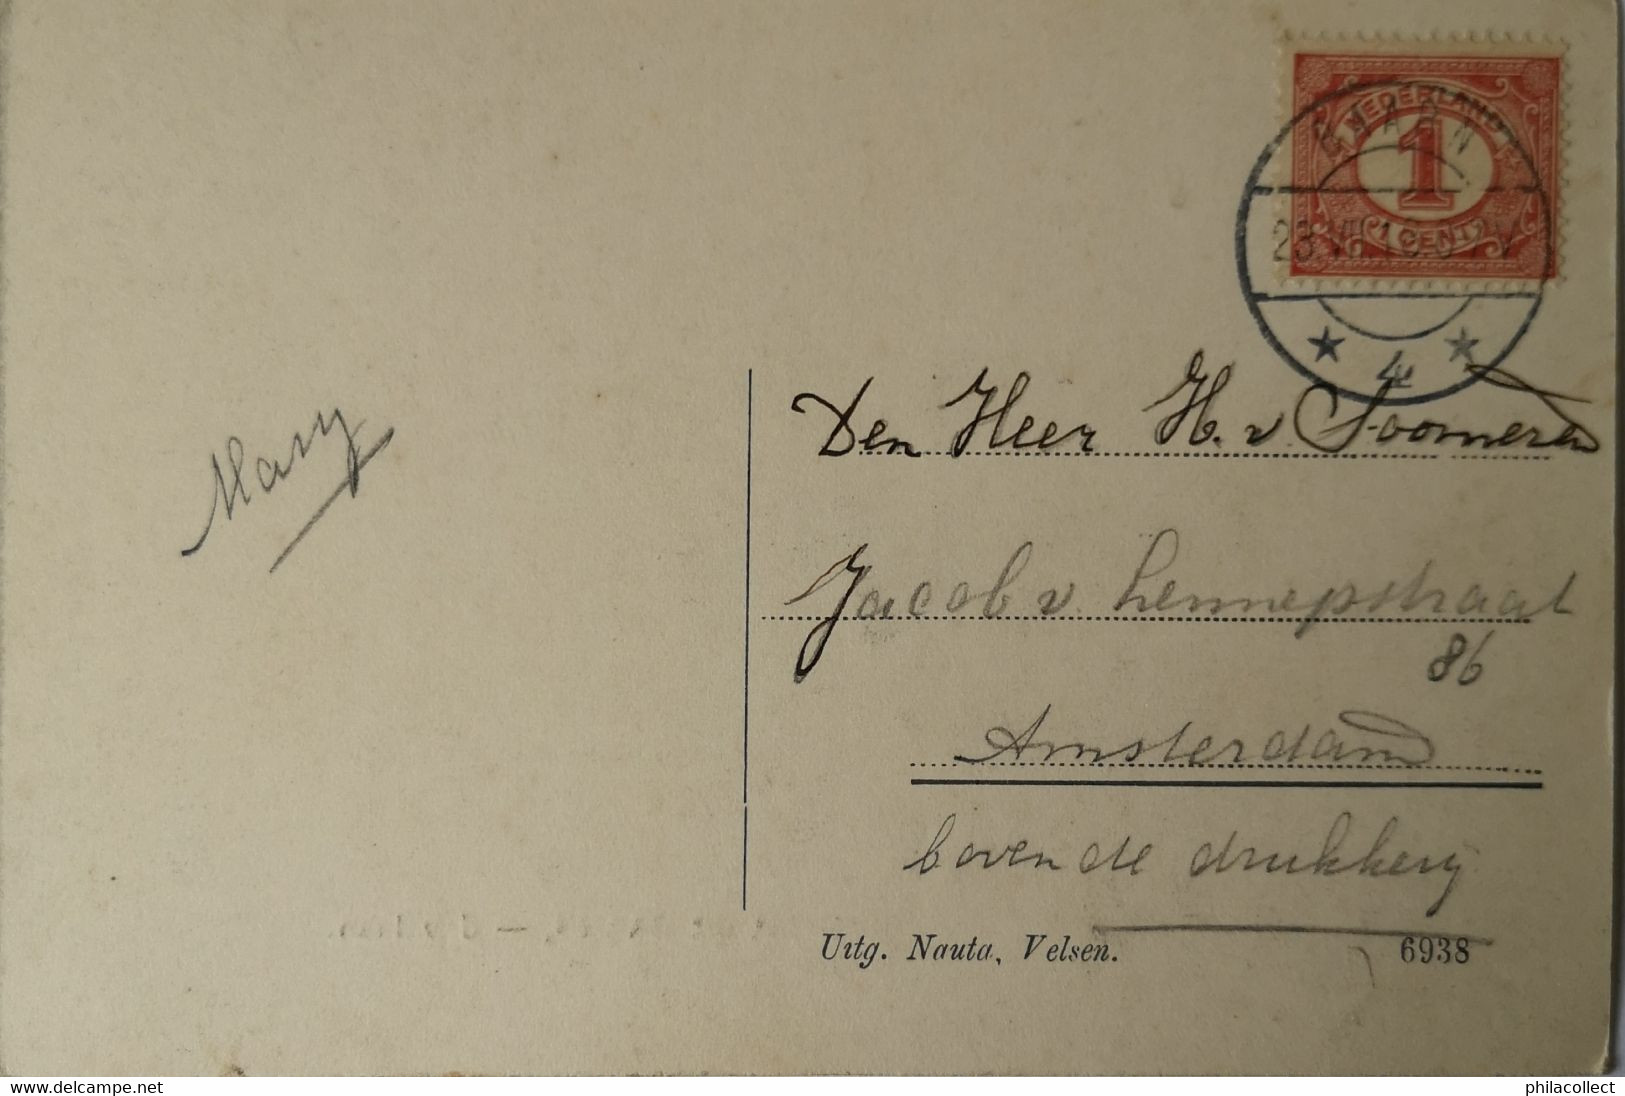 NEDERLAND
1
1 CENT
4
Mary
Den Heer H. v. Soomeren
Jacob v. Lennepstraat
86
Amsterdam
boven de drukkerij
Uitg. Nauta, Velsen. 6938
philacollect
www.delcampe.net